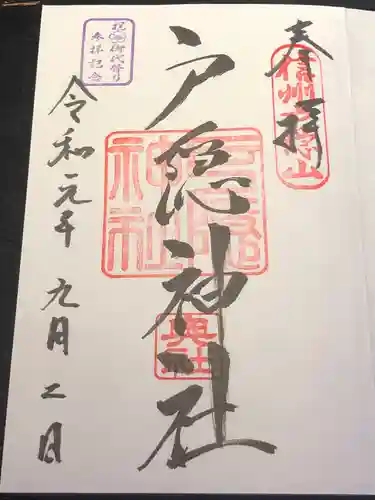 奉拝
信州戸隠山
戸隠神社
戸隠神社
奥社
祝 御代替り
参拝記念
令和元年 九月二日